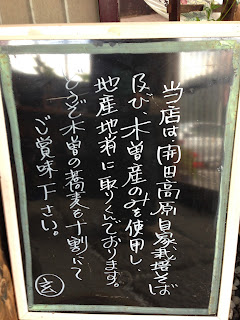 当店は開田高原自家栽培そば
及び、木曽産のみを使用し、
地産地消に取りくんでおります。
どうぞ木曽の蕎麦を十割にて
ご賞味下さい。
玄